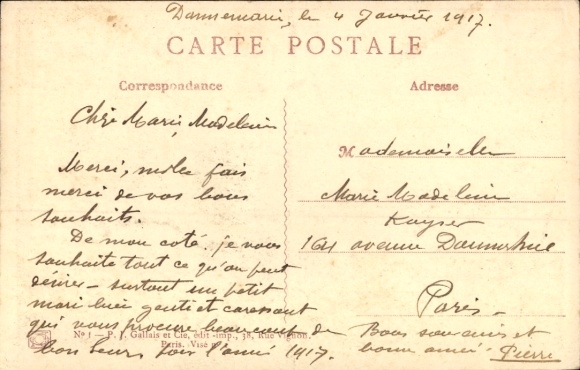 Dannemarie, le 4 Janvier 1917.
CARTE POSTALE
Correspondance
Adresse
Chère Marie Madeleine
Merci, mille fois
merci de vos bons
souhaits.
De mon coté, je vous
souhaite tout ce qu'on peut
désirer - surtout un petit
mari bien gentil et caressant
qui vous procure beaucoup de
bonheur pour l'année 1917.
Bons souvenirs et
bonne année. Pierre
Mademoiselle
Marie Madeleine
Kayser
164 avenue Daumesnil
Paris -
No 1 - P. J. Gallais et Cie, édit.-imp., 38, Rue Vignon.
Paris. Visé